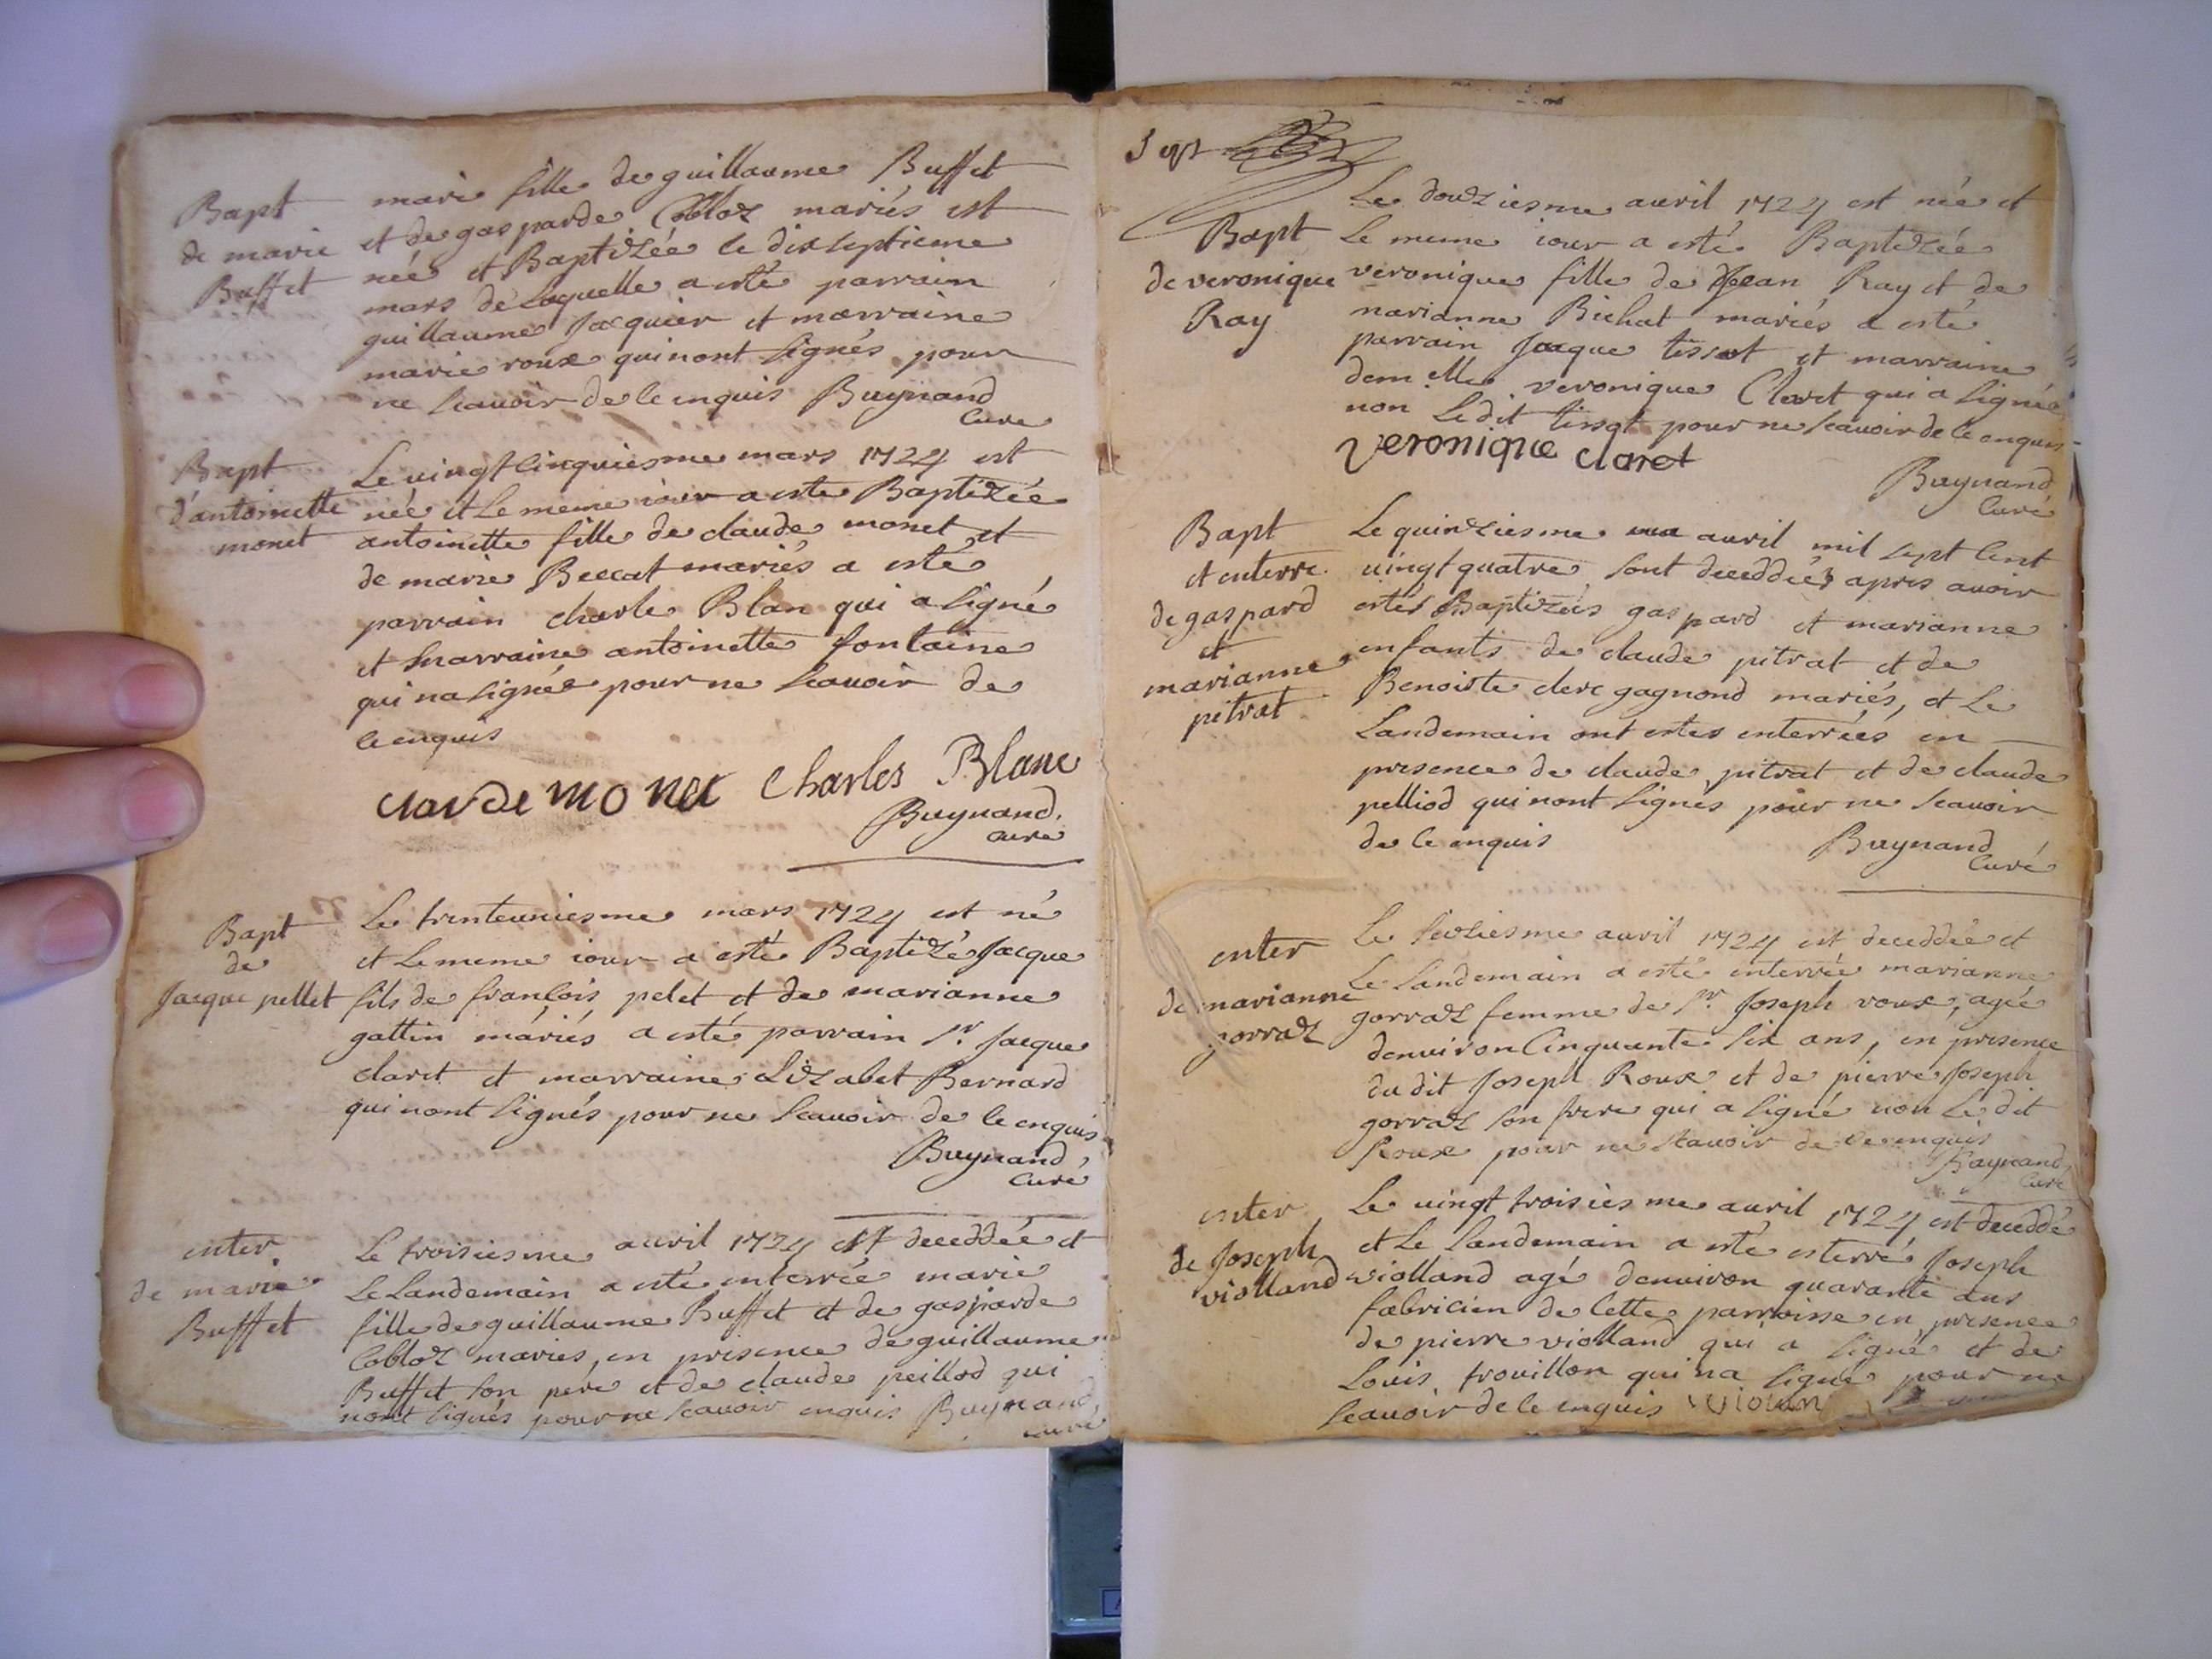 Bapt
de marie
Buffet
marie fille de guillaume Buffet
et de gasparde Cobloz mariés est
née et Baptizée le dixseptieme
mars de laquelle a esté parrain
guillaume Jacquier et marraine
marie roux qui nont signés pour
ne scauoir de ce enquis Buynand
Curé
Bapt
d'antoinette
monet
Le uingtcinquiesme mars 1724 est
née et Le meme iour a esté Baptizée
antoinette fille de claude monet et
de marie Beccat mariés a esté
parrain charle Blan qui a signé
et marraine antoinette fontaine
qui na signée pour ne scauoir de
ce enquis
claude monet Charles Blanc
Buynand
curé
Bapt
de
Jacque pellet
Le trenteuniesme mars 1724 est né
et Le meme iour a esté Baptizé Jacque
fils de françois pelet et de marianne
gattin mariés a esté parrain sr. Jacque
claret et marraine Lizabet Bernard
qui nont signés pour ne scauoir de ce enquis
Buynand
Curé
enter
de marie
Buffet
Le troisiesme auril 1724 est deceddée et
Le Landemain a esté enterrée marie
fille de guillaume Buffet et de gasparde
Cobloz mariés, en presence de guillaume
Buffet son pere et de claude peillod qui
nont signés pour ne scauoir enquis Buynand
curé
Sept
Bapt
de veronique
Ray
Le douziesme auril 1724 est née et
Le meme iour a esté Baptizée
veronique fille de Jean Ray et de
marianne Bichat mariés a esté
parrain Jacque tissot et marraine
demelle veronique Claret qui a signée
non Ledit tissot pour ne scauoir de ce enquis
veronique claret
Buynand
Curé
Bapt
et enterre
de gaspard
et
marianne
pitrat
Le quinziesme auril mil sept cent
uingt quatre sont deceddées apres auoir
estes Baptizés gaspard et marianne
enfants de claude pitrat et de
Benoiste clerc gagnond mariés, et Le
Landemain ont estes enterrées en
presence de claude pitrat et de claude
pelliod qui nont signés pour ne scauoir
de ce enquis
Buynand
Curé
enter
de marianne
gorraz
Le seiziesme auril 1724 est deceddée et
Le Landemain a esté enterrée marianne
gorraz femme de sr. Joseph roux, agée
denuiron Cinquante six ans, en presence
du dit Joseph Roux et de pierre Joseph
gorraz son frere qui a signé non Le dit
Roux pour ne scauoir de ce enquis
Buynand
Curé
enter
de Joseph
violland
Le uingt troisiesme auril 1724 est deceddé
et Le Landemain a esté esterré Joseph
violland agé denuiron quarante ans
fabricien de cette parroisse en presence
de pierre violland qui a signé et de
Louis trouillon qui na signé pour ne
scauoir de ce enquis